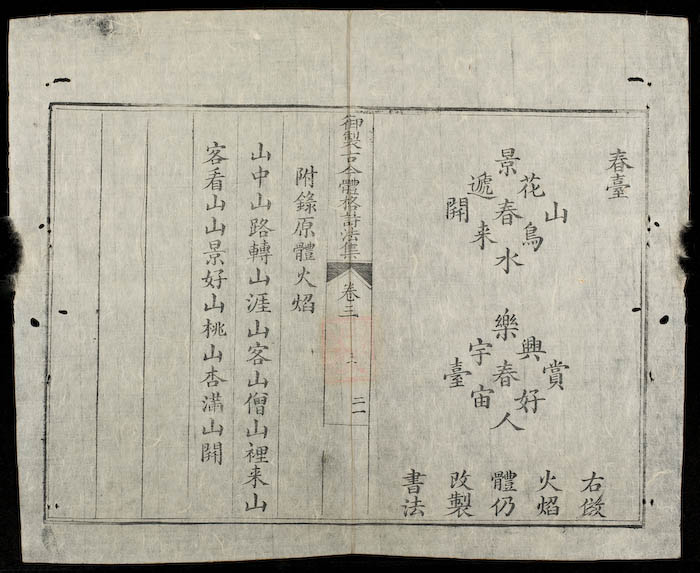 春臺
景
遞花
開春山
来鳥
水
樂
宇興
臺春賞
宙好
人
右倣
火焰
體仍
改製
書法
御製古今體格詩法集
卷三
二一
附錄原體火焰
山中山路轉山涯山客山僧山裡来山
客看山山景好山桃山杏滿山開